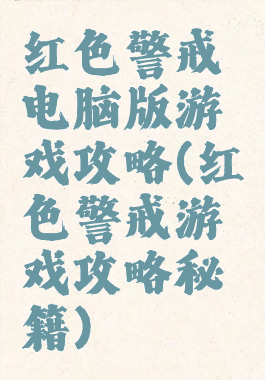 红色警戒
电脑版游
戏攻略(红
色警戒游
戏攻略秘
籍)